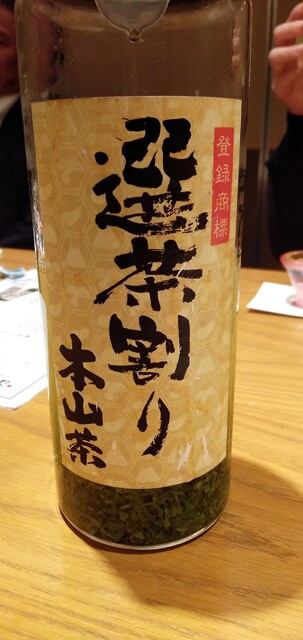 登録商標
選茶割り
本山茶